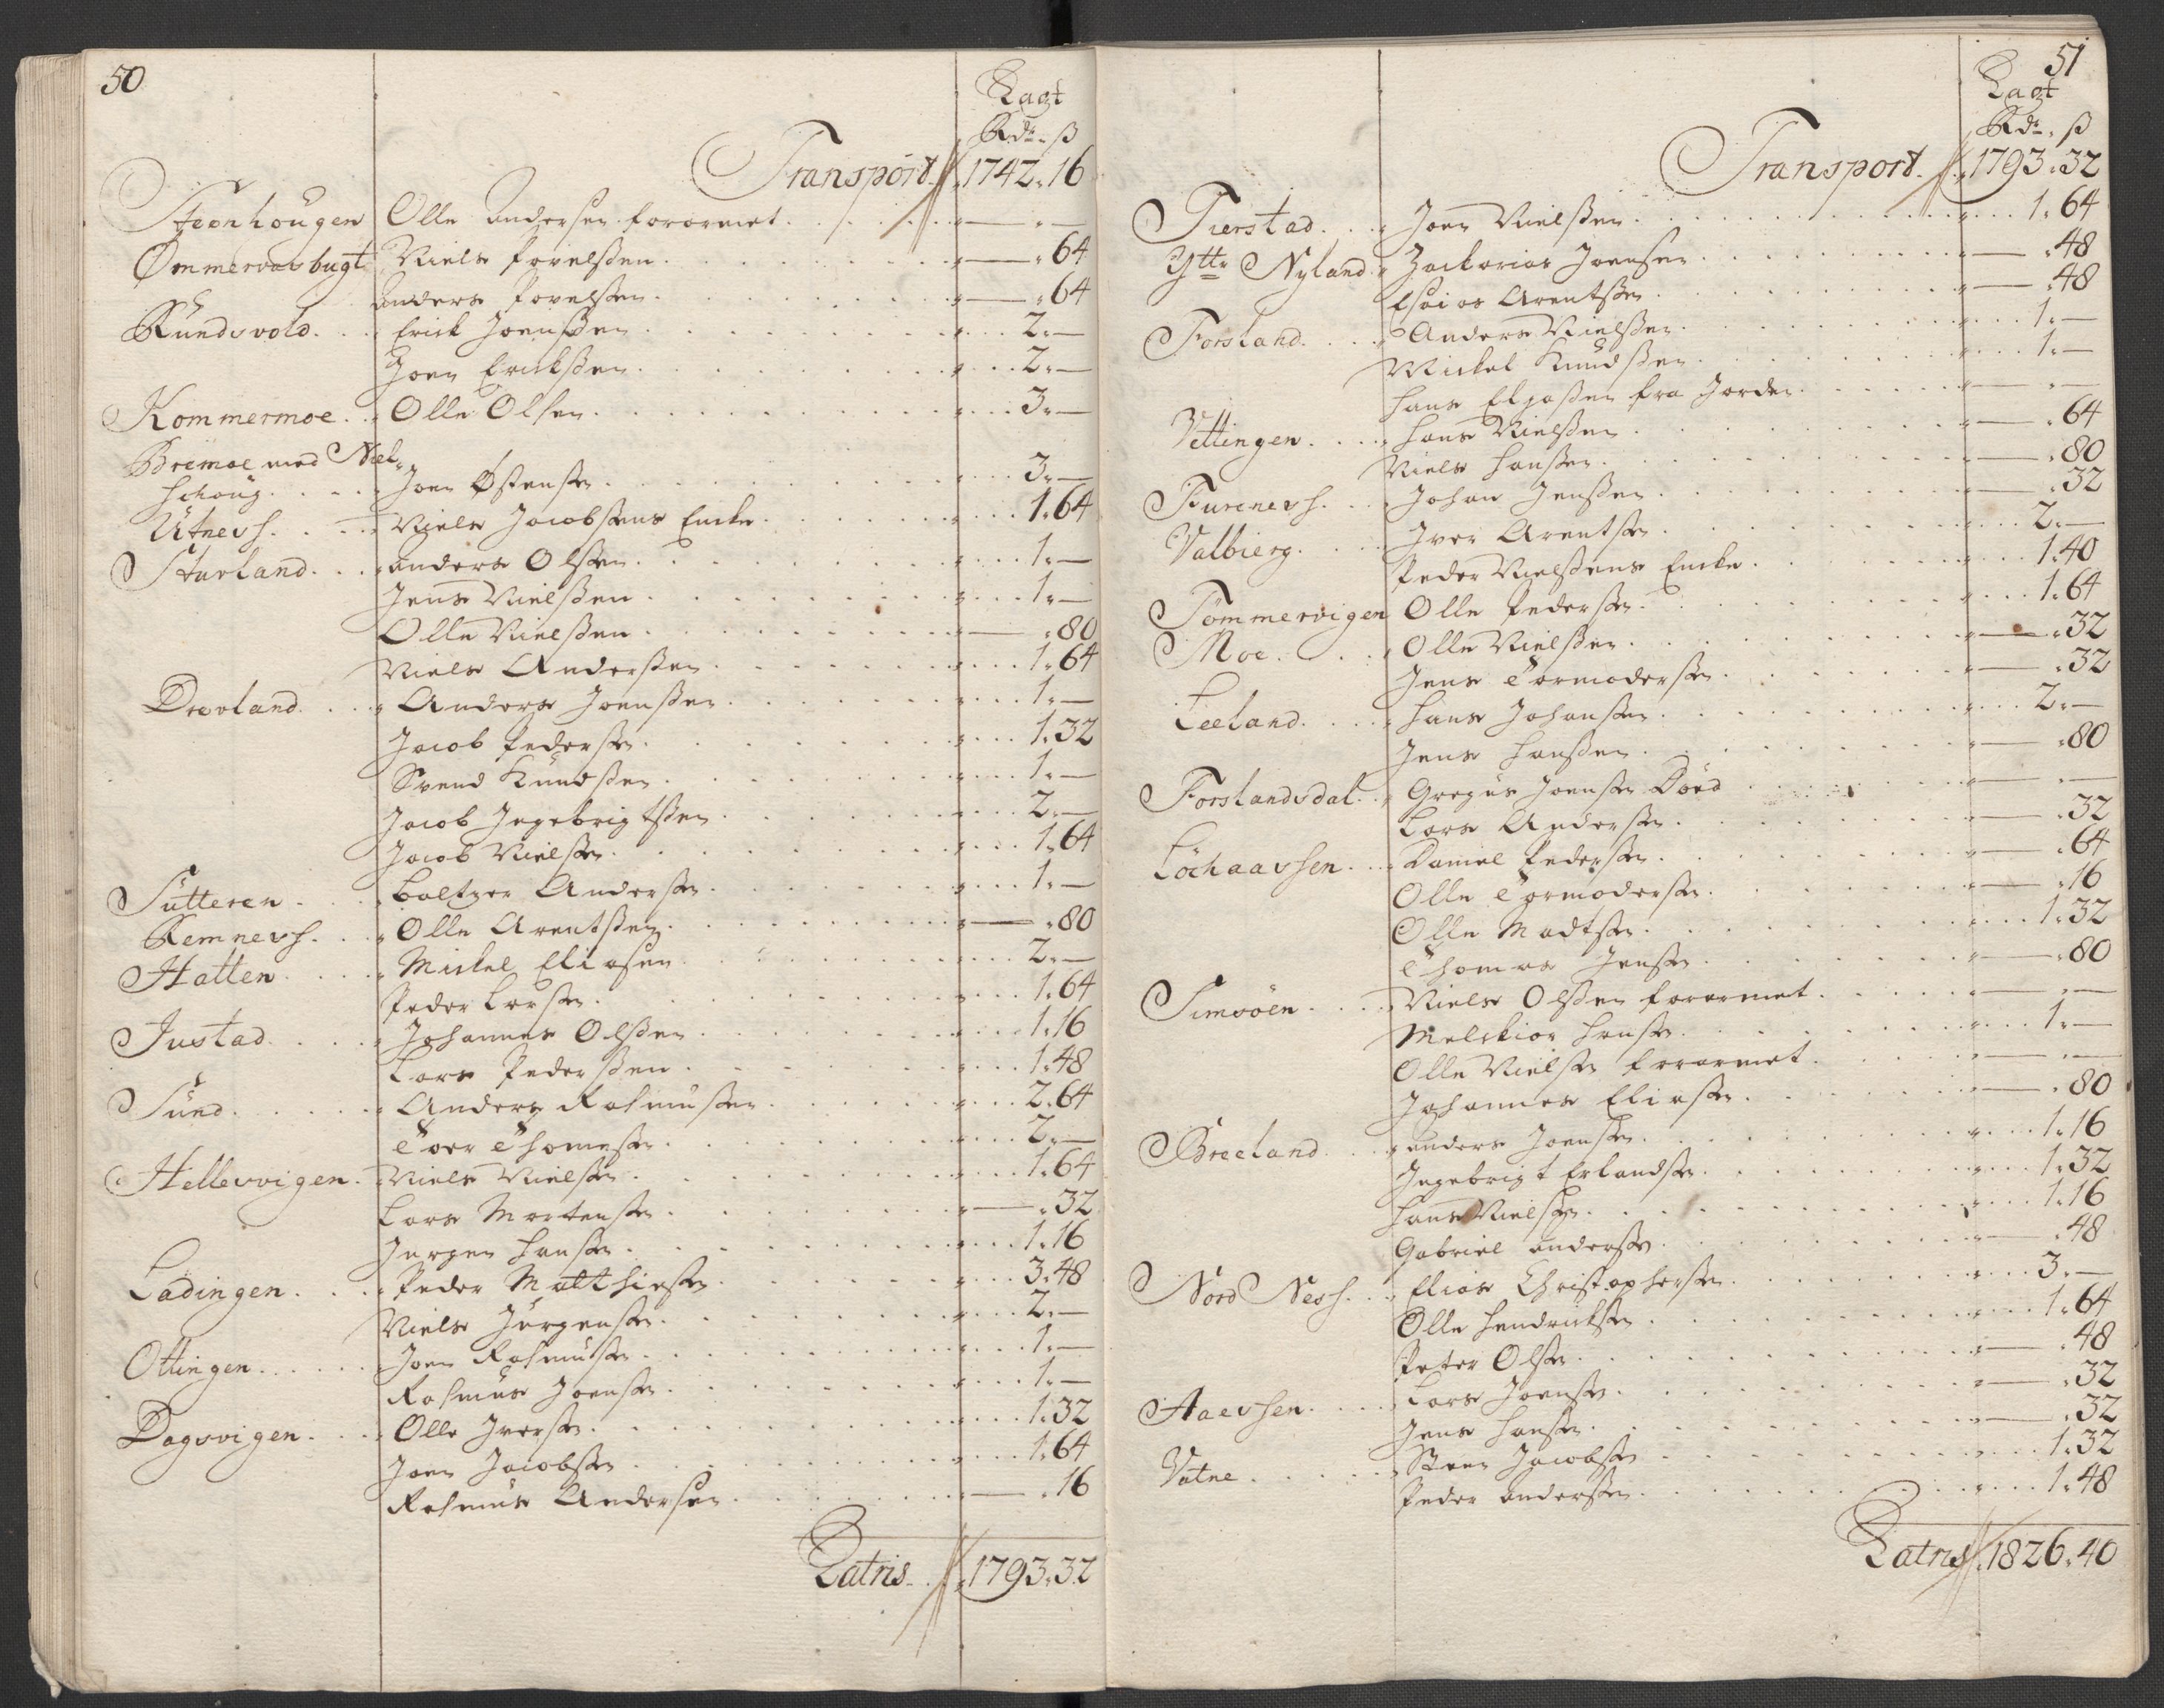 50
Lagt
Rdr. ß
Transport. 1742. 16
Steenhougen Olle Andersen forarmet. — . —
Ømmervasbugt Niels Povelßen. — . 64
Anders Povelßen. — . 64
Rundsvold. Erick Joenßen. 2. —
Joen Erickßen. 2. —
Kommermoe. Olle Olsen. 3. —
Bremoe med Niel-
schoug. Joen Østenßen. 3. —
Utnesh. Niels Jacobßens Encke. 1. 64
Sturland. Anders Olßen. 1. —
Jens Nielßen. 1. —
Olle Nielßen. — . 80
Niels Anderßen. 1. 64
Drevland. Anders Joenßen. 1. —
Jacob Pederßen. 1. 32
Svend Knudßen. 1. —
Jacob Ingebrigtßen. 2. —
Jacob Nielßen. 1. 64
Sutteren. Baltzer Anderßen. 1. —
Remnesh. Olle Arentßen. — . 80
Hatten. Mickel Eliasen. 2. —
Peder Larßen. 1. 64
Justad. Johannes Olßen. 1. 16
Lars Pederßen. 1. 48
Sund. Anders Rasmußen. 2. 64
Toer Thomeßen. 2. —
Hellesvigen. Niels Nielßen. 1. 64
Lars Mortenßen. — . 32
Jurgen Hanßen. 1. 16
Ladingen. Peder Matthießen. 3. 48
Niels Jurgenßen. 2. —
Ottingen. Joen Rasmußen. 1. —
Rasmus Joenßen. 1. —
Dagsvigen. Olle Iverßen. 1. 32
Joen Jacobßen. 1. 64
Rasmus Andersen. — . 16
Latris. 1793. 32
51
Lagt
Rdr. ß
Transport. 1793. 32
Tierstad. Joen Nielßen. 1. 64
Yttr Nyland. Zackarias Joensen. — . 48
Esaias Arentßen. — . 48
Forsland. Anders Nielßen. 1. —
Mickel Knudßen. 1. —
Hans Eljaßen fra Jorden. — . —
Vettingen. Hans Nielßen. — . 64
Niels Hanßen. — . 80
Furenesh. Johan Jenßen. — . 32
Valbierg. Iver Arentßen. 2. —
Peder Nielßens Encke. 1. 40
Tømmervigen Olle Pederßen. 1. 64
Moe. Olle Nielßen. — . 32
Jens Tormoderßen. — . 32
Leeland. Hans Johanßen. 2. —
Jens Hanßen. — . 80
Forslandsdal. Gregus Joenßen Døed — . —
Lars Anderßen. — . 32
Løchaassen. Daniel Pederßen. — . 64
Olle Tormoderßen. — . 16
Olle Madtßen. 1. 32
Thomas Jenßen. — . 80
Simsøen. Niels Olßen forarmet. — . —
Melckior Hanßen. 1. —
Olle Nielßen forarmet. — . —
Johannes Eliaßen. — . 80
Breeland. Anders Joenßen. 1. 16
Ingebrigt Erlandßen. 1. 32
Hans Nielßen. 1. 16
Gabriel Anderßen. — . 48
Nord Nesh. Elias Christopherßen. 3. —
Olle Hendrickßen. 1. 64
Peter Olßen. — . 48
Lars Joenßen. — . 32
Aaessen. Jens Hanßen. — . 32
Vatne. Steen Jacobßen. 1. 32
Peder Anderßen. 1. 48
Latris 1826. 40